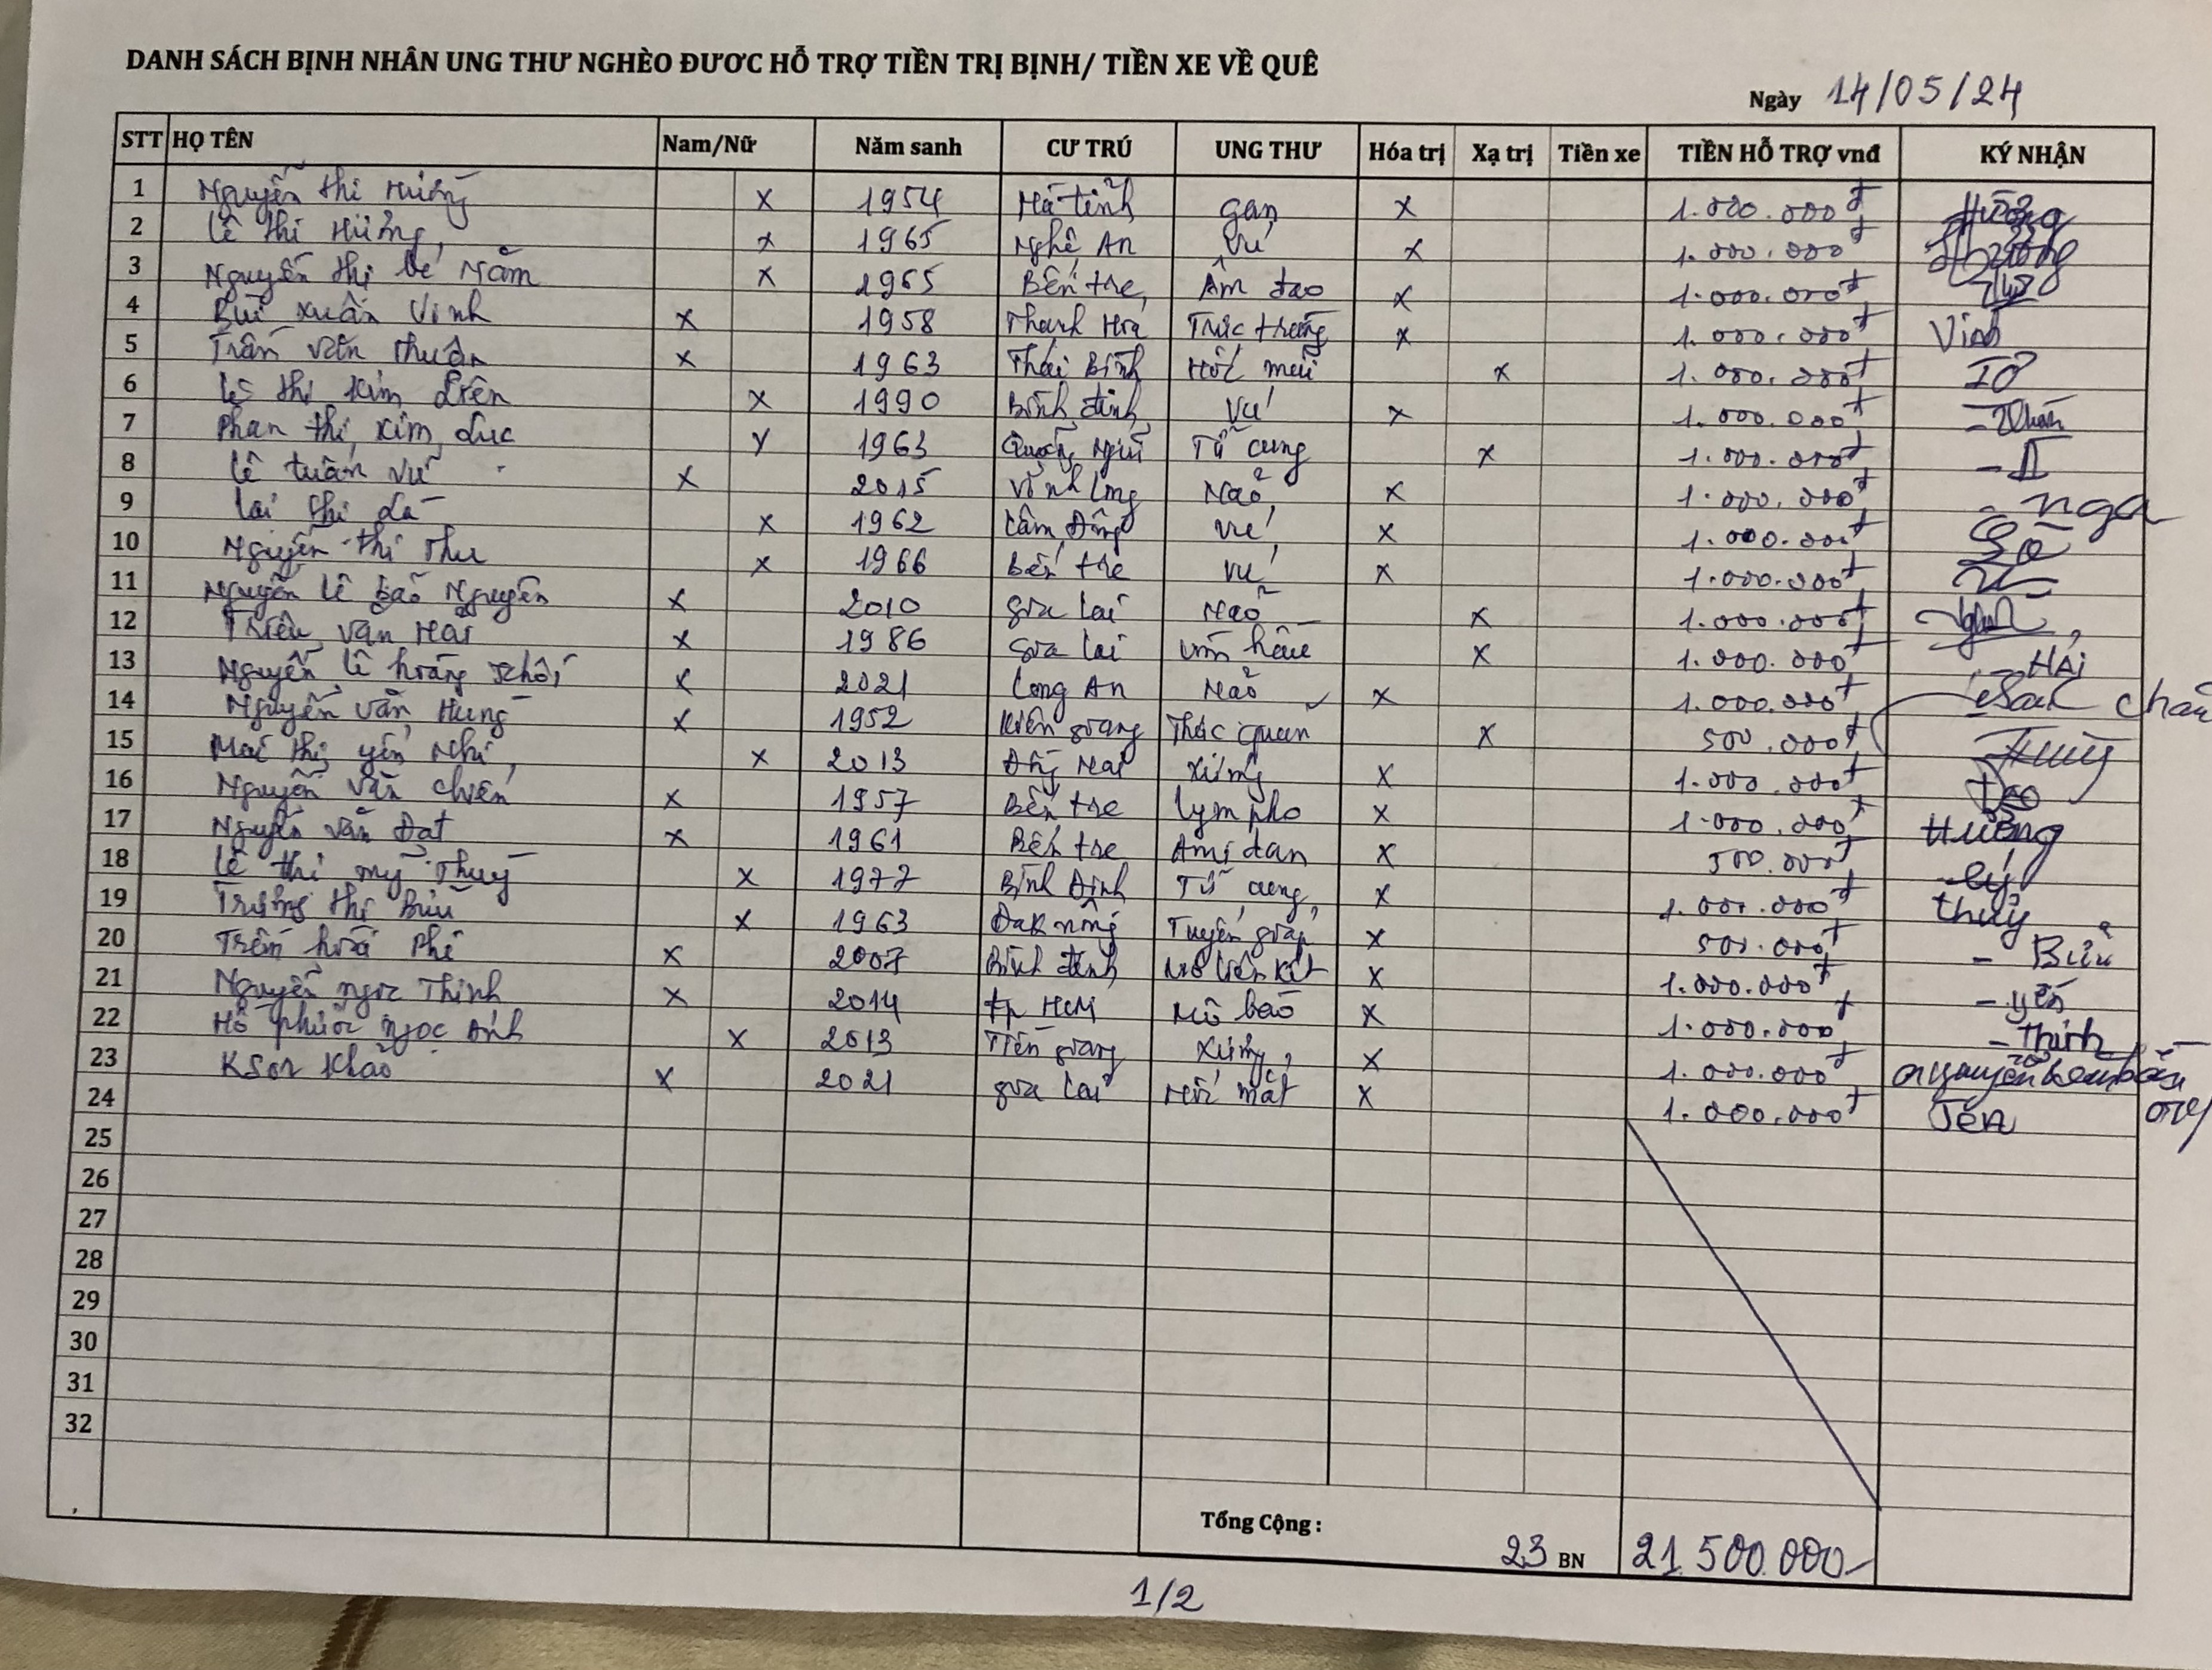 DANH SÁCH BỊNH NHÂN UNG THƯ NGHÈO ĐƯƠC HỖ TRỢ TIỀN TRỊ BỊNH/ TIỀN XE VỀ QUÊ
Ngày 14/05/24
STT HỌ TÊN Nam/Nữ Năm sanh CƯ TRÚ UNG THƯ Hóa trị Xạ trị Tiền xe TIỀN HỖ TRỢ vnđ KÝ NHẬN
1 Nguyễn thi Hường x 1954 Hà tĩnh gan x 1.000.000đ Hường
2 Lê thi x 1965 Nghệ An Vú x 1.000.000đ
3 Nguyễn thị bé Năm x 1965 Bến tre Âm đạo x 1.000.000đ
4 Bùi xuân Vinh x 1958 Thanh Hoá Trực tràng x 1.000.000đ Vinh
5 Trần văn Thuận x 1963 Thái Bình Hốc mũi x 1.000.000đ
6 Lê thị Kim x 1990 Bình định Vú x 1.000.000đ
7 Phan thị Kim x 1963 Quảng Ngãi Tử cung x 1.000.000đ
8 Lê tuấn Vũ x 2015 Vĩnh long Não x 1.000.000đ - nga
9 Lai thi x 1962 Lâm Đồng Vú x 1.000.000đ
10 Nguyễn thị Thu x 1966 Bến tre Vú x 1.000.000đ
11 Nguyễn Lê Bảo Nguyên x 2010 gia lai Não x 1.000.000đ
12 Triệu văn Hải x 1986 gia lai Vòm hầu x 1.000.000đ - HẢi
13 Nguyễn Lê hoàng Khôi x 2021 Long An Não x 1.000.000đ
14 Nguyễn văn Hùng x 1952 Kiên giang Thực quản x 500.000đ Hùng
15 Mai thị yến Nhi x 2013 Đồng Nai Xương x 1.000.000đ
16 Nguyễn văn chiến x 1957 Bến tre lympho x 1.000.000đ Hường
17 Nguyễn văn Đạt x 1961 Bến tre Amidan x 500.000đ
18 Lê thi mỹ Thuý x 1977 Bình Định Tử cung x 1.000.000đ thuý
19 Trương thị Bửu x 1963 Đak nông Tuyến giáp x 500.000đ - Bửu
20 Trần hoài Phi x 2007 Bình định Mô liên kết x 1.000.000đ - yến
21 Nguyễn ngọc Thịnh x 2014 tp HCM Mô bào x 1.000.000đ - Thịnh
22 Hồ phước ngọc Ánh x 2013 Tiền giang Xương x 1.000.000đ
23 KSor Khảo x 2021 gia lai Hốc mắt x 1.000.000đ
24
25
26
27
28
29
30
31
32
Tổng Cộng : 23 BN 21.500.000-
1/2